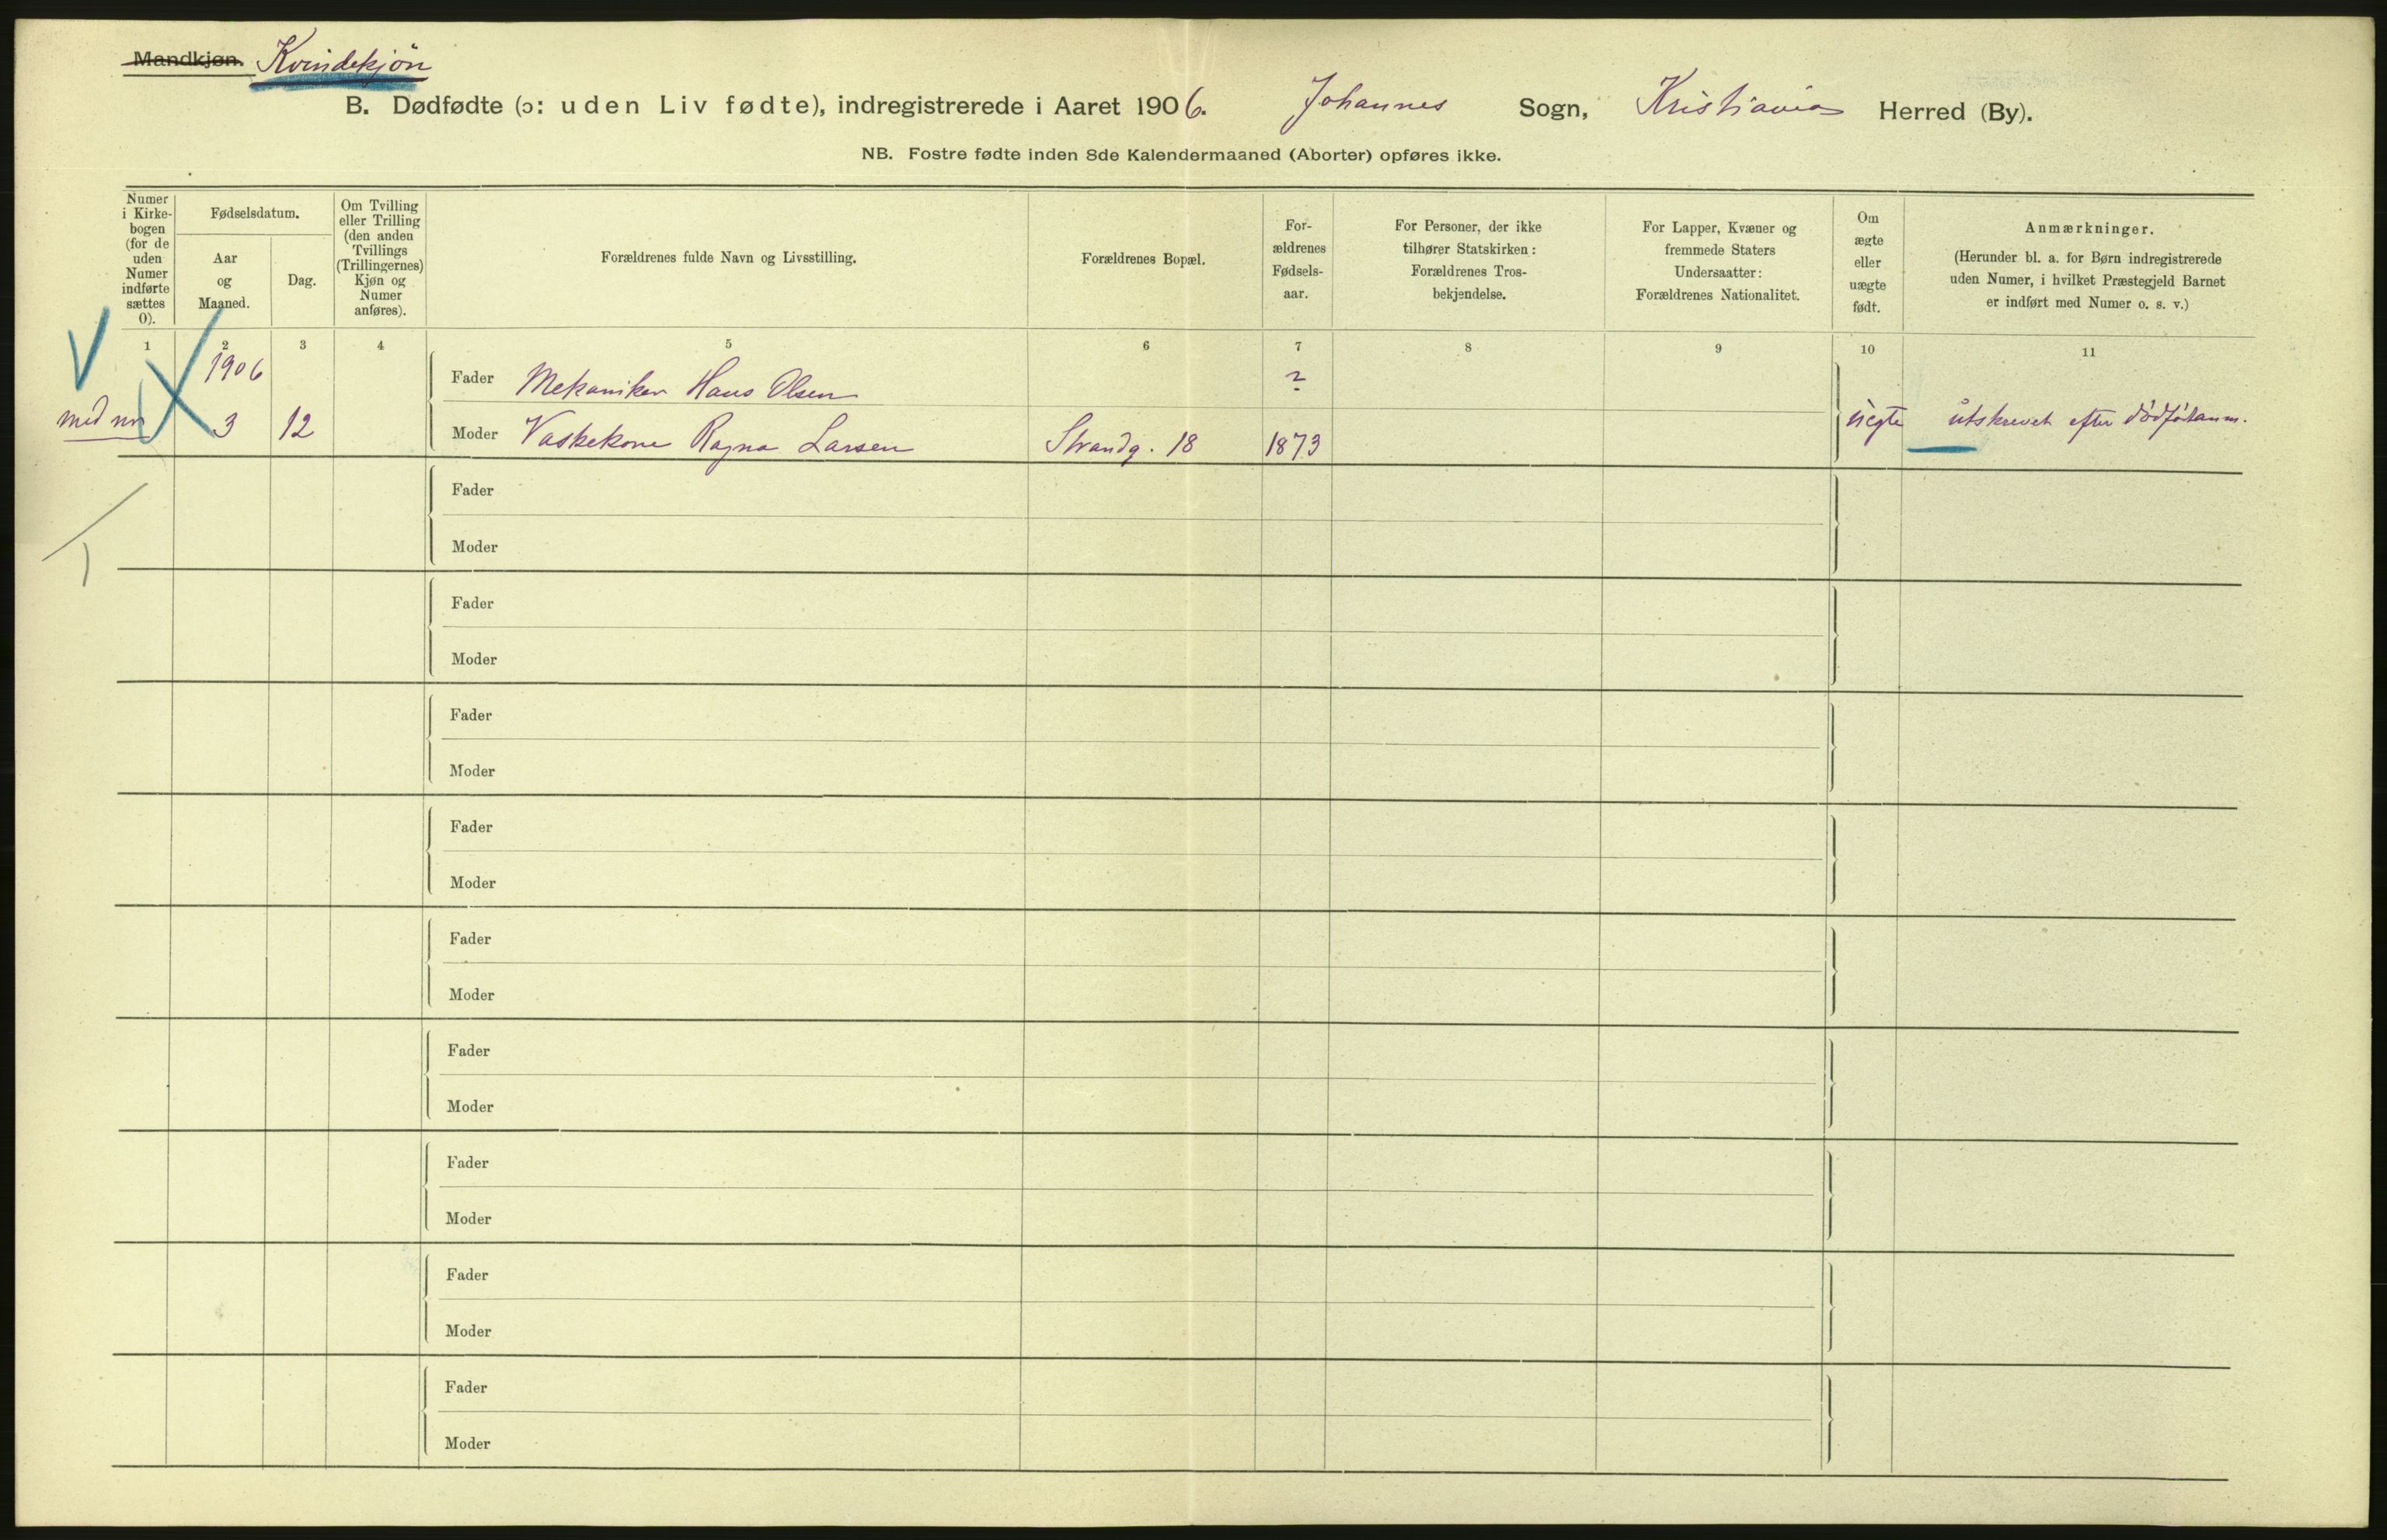 Mandkjøn. Kvindekjön
B. Dødfødte (ɔ: uden Liv fødte), indregistrerede i Aaret 1906. Johannes Sogn, Kristiania Herred (By).
NB. Fostre fødte inden 8de Kalendermaaned (Aborter) opføres ikke.
Numer
i Kirke-
bogen
(for de
uden
Numer
indførte
sættes
0).
Fødselsdatum.
Aar
og
Maaned.
Dag.
Om Tvilling
eller Trilling
(den anden
Tvillings
(Trillingernes)
Kjøn og
Numer
anføres).
Forældrenes fulde Navn og Livsstilling.
Forældrenes Bopæl.
For-
ældrenes
Fødsels-
aar.
For Personer, der ikke
tilhører Statskirken:
Forældrenes Tros-
bekjendelse.
For Lapper, Kvæner og
fremmede Staters
Undersaatter:
Forældrenes Nationalitet.
Om
ægte
eller
uægte
født.
Anmærkninger.
(Herunder bl. a. for Børn indregistrerede
uden Numer, i hvilket Præstegjeld Barnet
er indført med Numer o. s. v.)
1 2 3 4 5 6 7 8 9 10 11
1906
Fader Mekaniker Hans Olsen ?
med nr 3 12 Moder Vaskekone Ragna Larsen Strandg. 18 1873
utskrevet efter
Fader
Moder
Fader
Moder
Fader
Moder
Fader
Moder
Fader
Moder
Fader
Moder
Fader
Moder
Fader
Moder
Fader
Moder